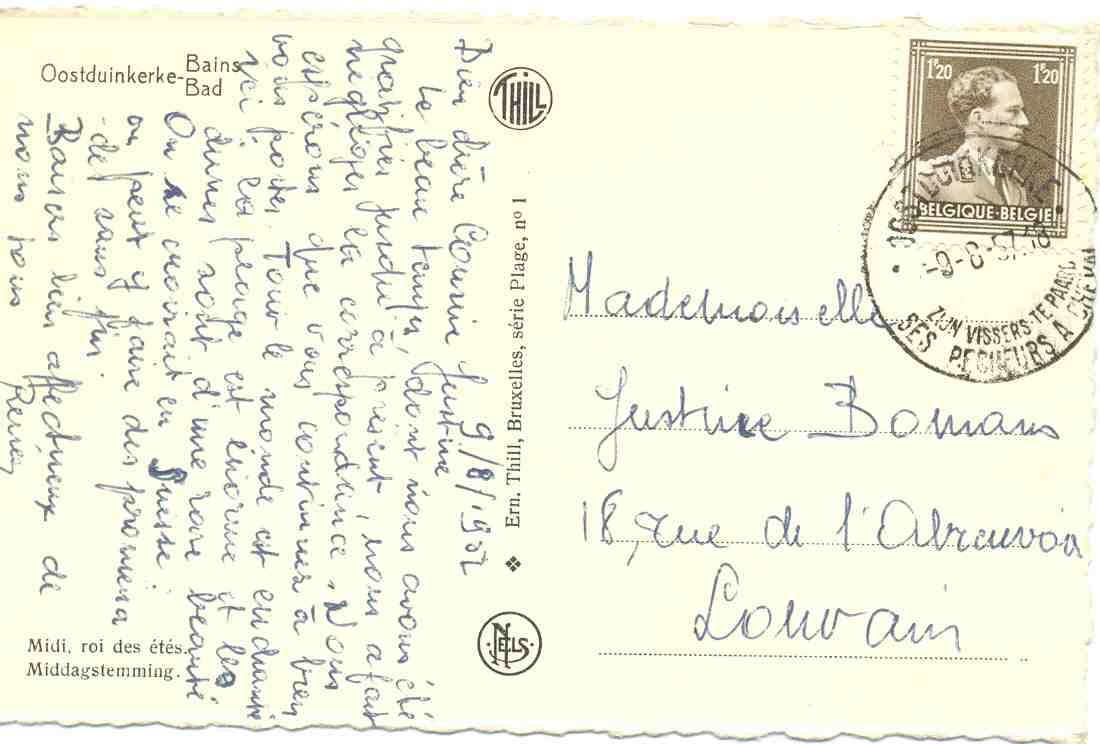 Oostduinkerke-Bains
Bad
THILL
1F20 1F20
BELGIQUE-BELGIE
OOSTDUINKERKE
-9-8-57.18
ZIJN VISSERS TE PAARD
SES PECHEURS A CHEVAL
9/8/1957
Bien chère Cousine Justine
Le beau temps, dont nous avons été
gratifiés jusqu'à présent, nous a fait
négliger la correspondance. Nous
espérons que vous continuez à bien
vous porter. Tout le monde est enchanté
ici, la plage est énorme et les
dunes sont d'une rare beauté
On se croirait en Suisse
on peut y faire des promena
-des sans fin.
Baisers bien affectueux de
nous tous
Ern. Thill, Bruxelles, série Plage, nº 1
NELS
Mademoiselle
Justine Bomans
18, rue de l'Abreuvoir
Louvain
Midi, roi des étés.
Middagstemming.